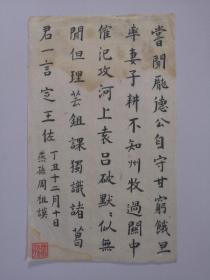 嘗聞龐德公自守甘窮餓旦
率妻子耕不知州牧過關中
催汜攻河上袁呂破默默似無
聞但理芸鉏課獨識諸葛
君一言定王佐
丁丑十二月十日
燕孫周祖謨